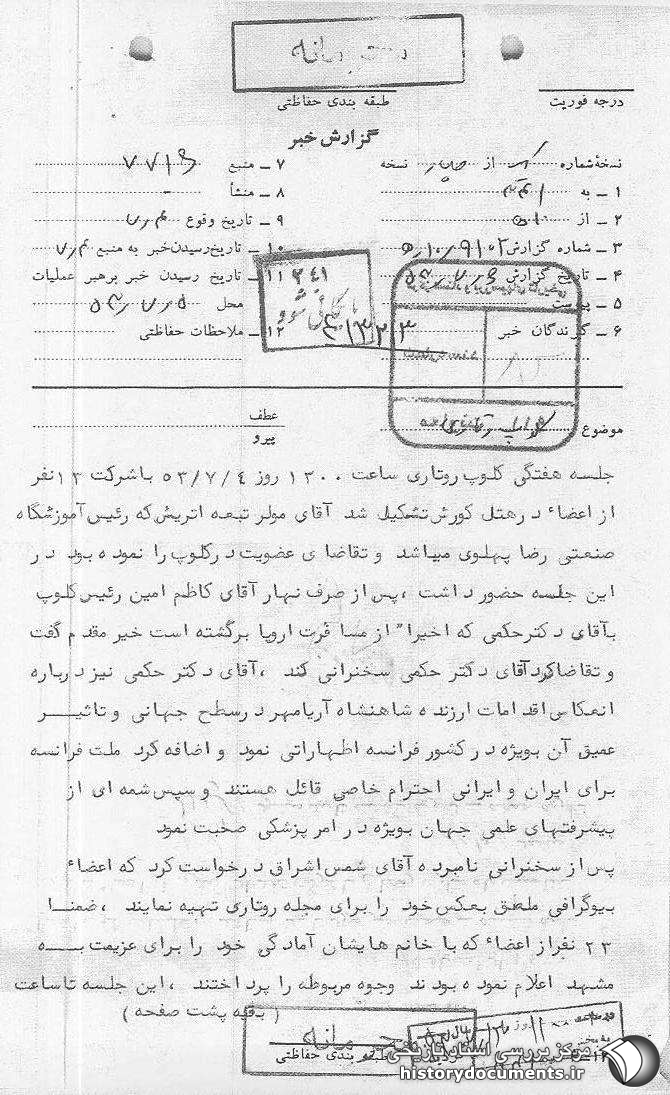 طبقه بندی حفاظتی
درجه فوریت
گزارش خبر
نسخهٔ شماره از نسخه
۱ ـ به
۲ ـ از
۳ ـ شماره گزارش
۴ ـ تاریخ گزارش
۵ ـ پیوست
۶ ـ گیرندگان خبر
۷ ـ منبع ۷۷۱۶
۸ ـ منشأ -
۹ ـ تاریخ وقوع
۱۰ ـ تاریخ رسیدن خبر به منبع
۱۱ ـ تاریخ رسیدن خبر برهبر عملیات
محل
۱۲ ـ ملاحظات حفاظتی
موضوع
عطف
پیرو
جلسه هفتگی کلوپ روتاری ساعت ۱۳۰۰ روز ۵۳/۷/۴ باشرکت ۱۳ نفر
از اعضاء در هتل کورش تشکیل شد آقای مولر تبعه اتریش که رئیس آموزشگاه
صنعتی رضا پهلوی میباشد و تقاضای عضویت در کلوپ را نموده بود در
این جلسه حضور داشت ، پس از صرف نهار آقای کاظم امین رئیس کلوپ
بآقای دکتر حکمی که اخیراً از مسافرت اروپا برگشته است خیر مقدم گفت
و تقاضا کرد آقای دکتر حکمی سخنرانی کند ، آقای دکتر حکمی نیز درباره
انعکاس اقدامات ارزنده شاهنشاه آریامهر در سطح جهانی و تاثیر
عمیق آن بویژه در کشور فرانسه اظهاراتی نمود و اضافه کرد ملت فرانسه
برای ایران و ایرانی احترام خاصی قائل هستند و سپس شمه ای از
پیشرفتهای علمی جهان بویژه در امر پزشکی صحبت نمود
پس از سخنرانی نامبرده آقای شمس اشراق درخواست کرد که اعضاء
بیوگرافی ملصق بعکس خود را برای مجله روتاری تهیه نمایند ، ضمنا
۲۳ نفر از اعضاء که با خانم هایشان آمادگی خود را برای عزیمت به
مشهد اعلام نموده بودند وجوه مربوطه را پرداختند ، این جلسه تا ساعت
( بقیه پشت صفحه )
طبقه بندی حفاظتی
مرکز بررسی اسناد تاریخی
historydocuments.ir